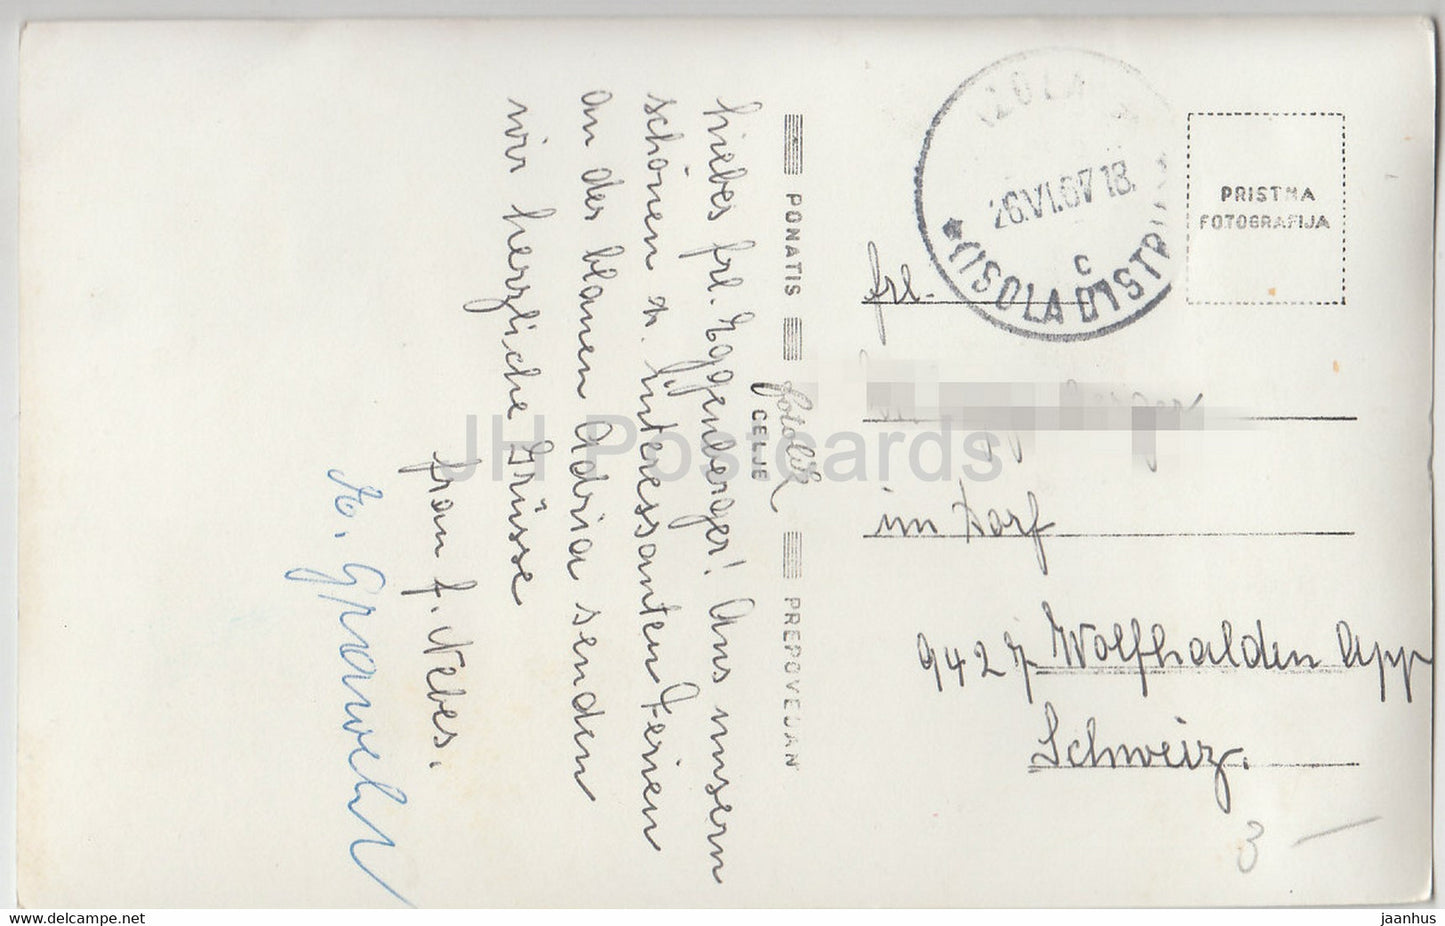 Liebes frl. Eggenberger! Aus unsern
schönen u. interessanten Ferien
an der blauen Adria senden
wir herzliche Grüsse
frau f. Nebes.
PONATIS
fotolik
CELJE
PREPOVEDAN
IZOLA
26.VI.67 18.
C
(ISOLA D'ISTRIA)
PRISTNA
FOTOGRAFIJA
frl.
im Dorf
9427 Wolfhalden App
Schweiz.
3 —
JH Postcards
www.delcampe.net
jaanhus